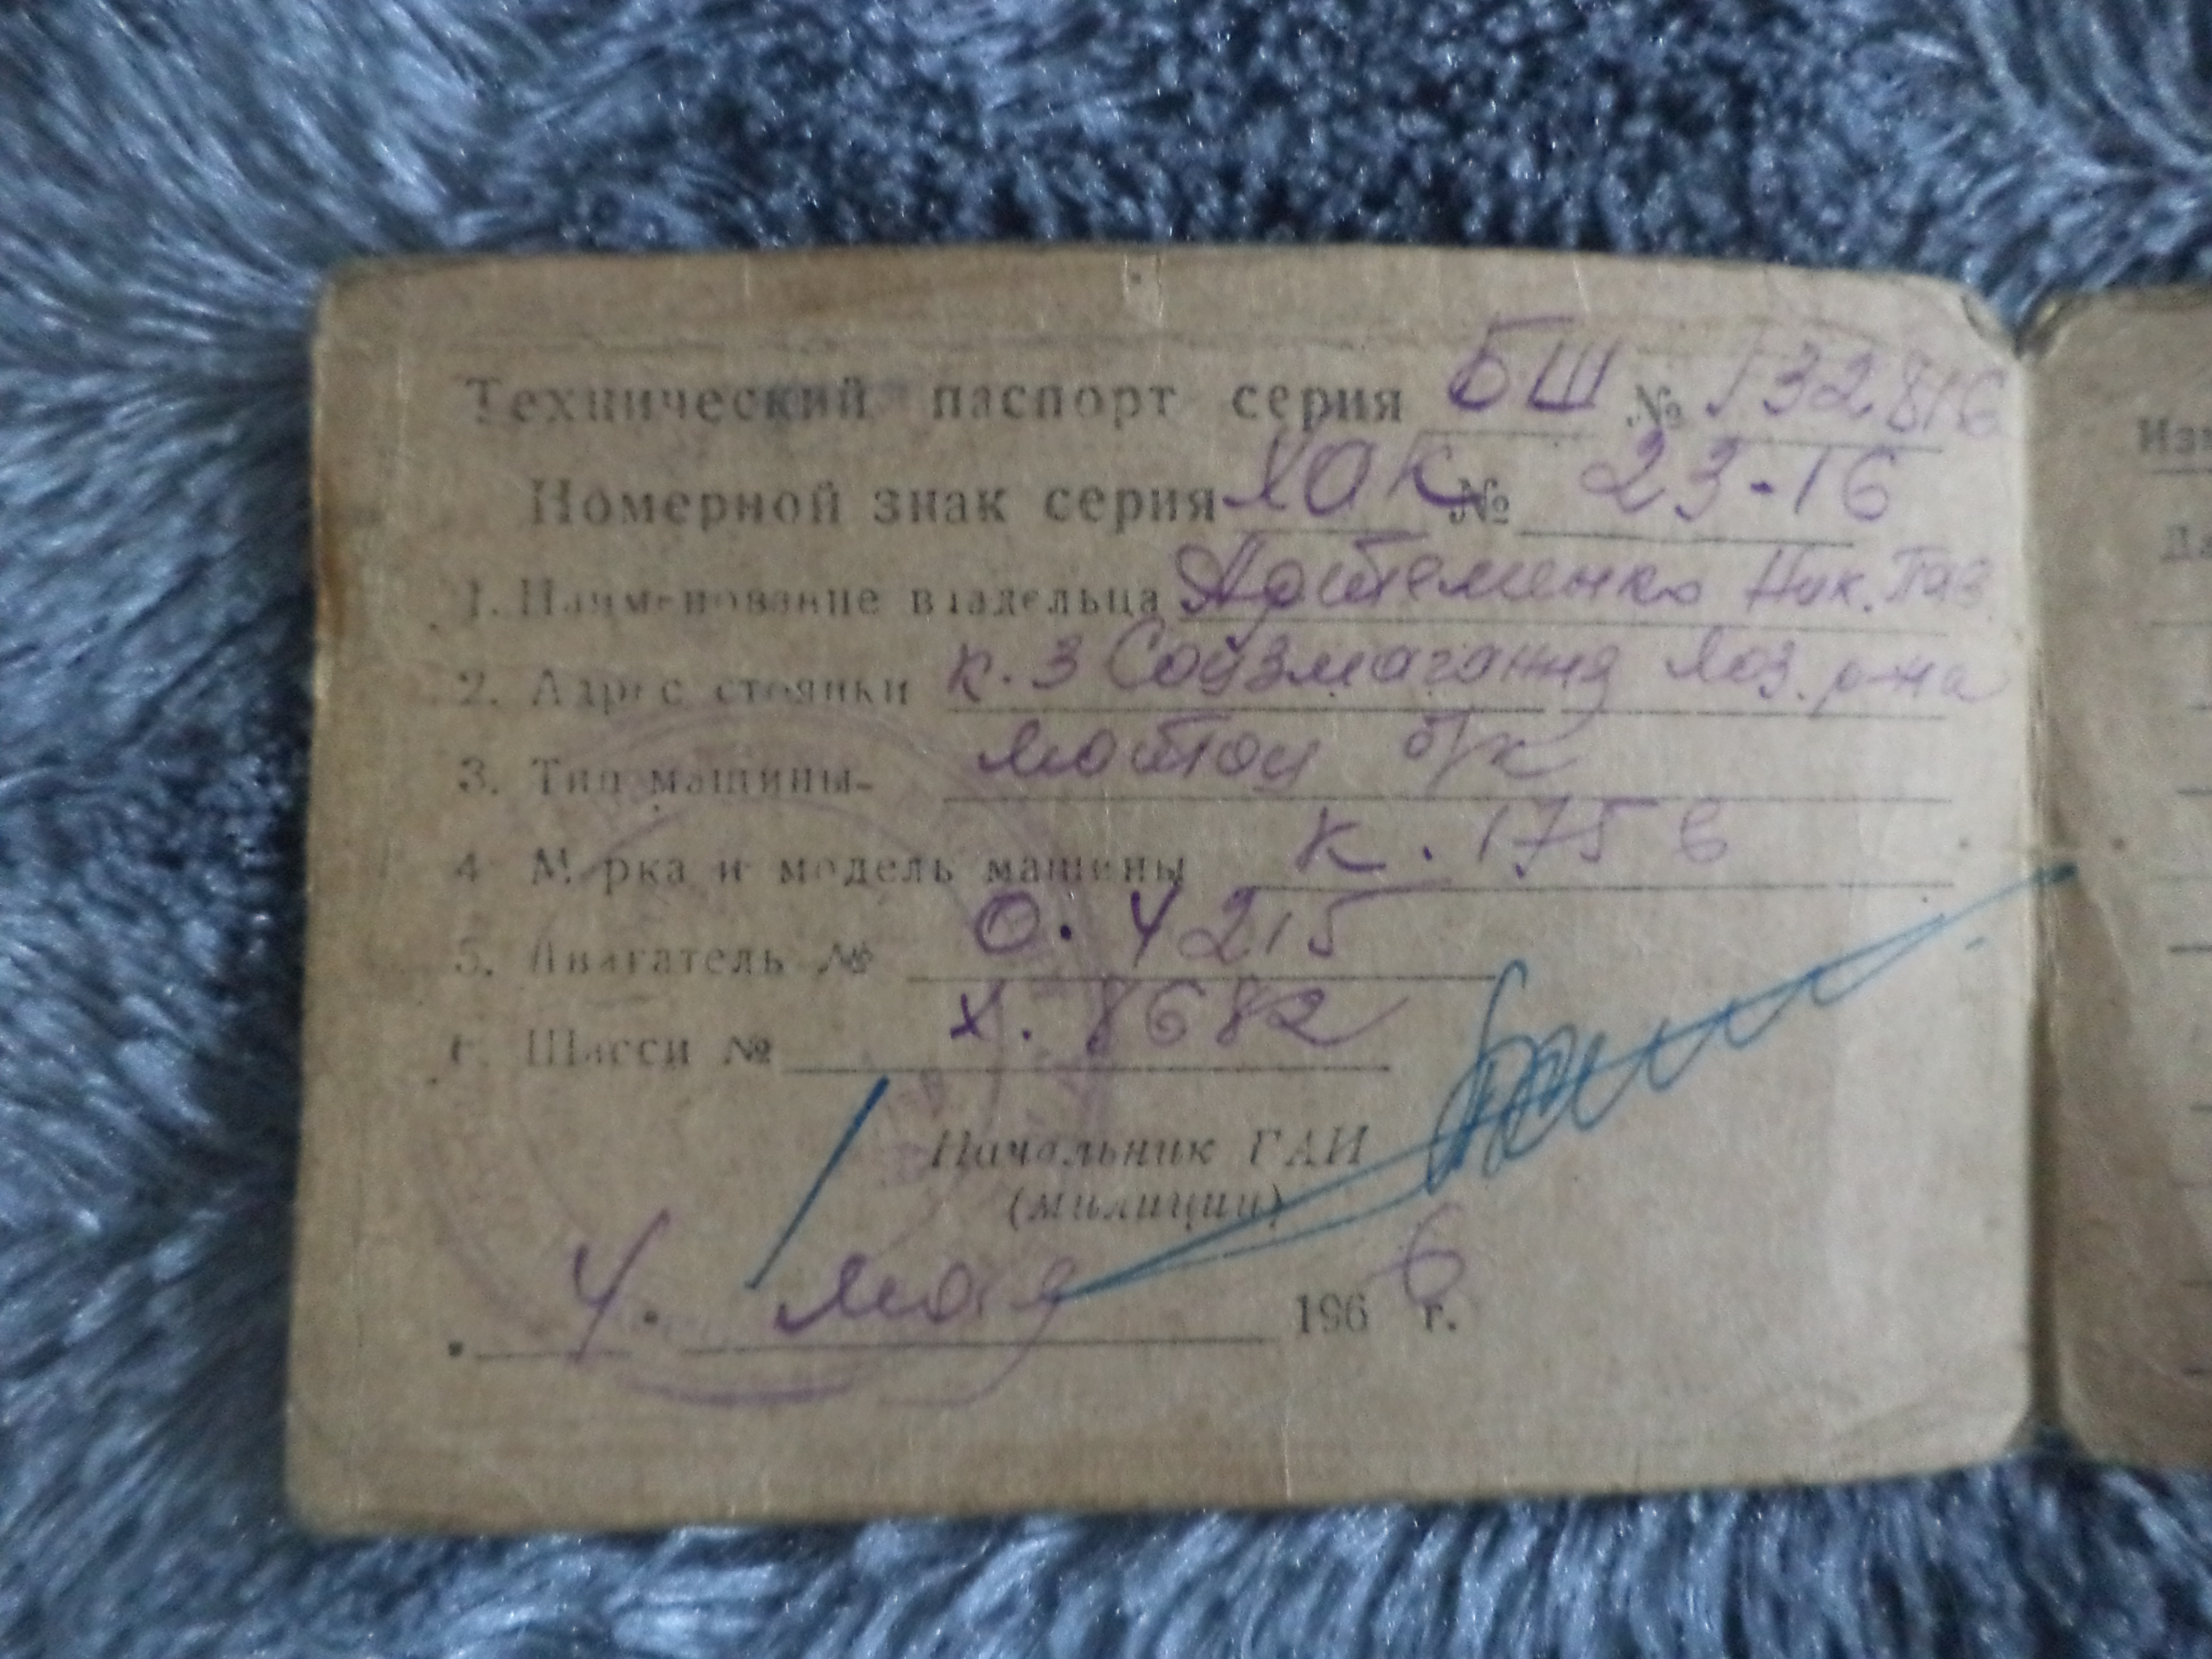 Технический паспорт серия БШ № 132816
Номерной знак серия ХОК № 23-16
1. Наименование владельца Артеменко Ник. Пав
2. Адрес стоянки к. з Соцзмагання Лоз. р-на
3. Тип машины- мотоц б/к
4 Марка и модель машины К. 175 в
5. Двигатель № О. 4215
6. Шасси № Х. 8682
Начальник ГАИ
(милиции)
4. мая 1966 г.